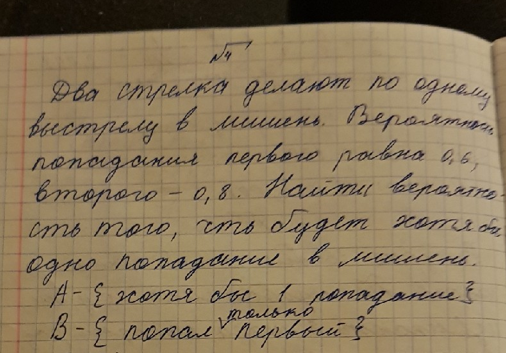 №4
Два стрелка делают по одному
выстрелу в мишень. Вероятность
попадания первого равна 0,6,
второго - 0,8. Найти вероятно-
сть того, что будет хотя бы
одно попадание в мишень.
A - { хотя бы 1 попадание }
только
B - { попал первый }